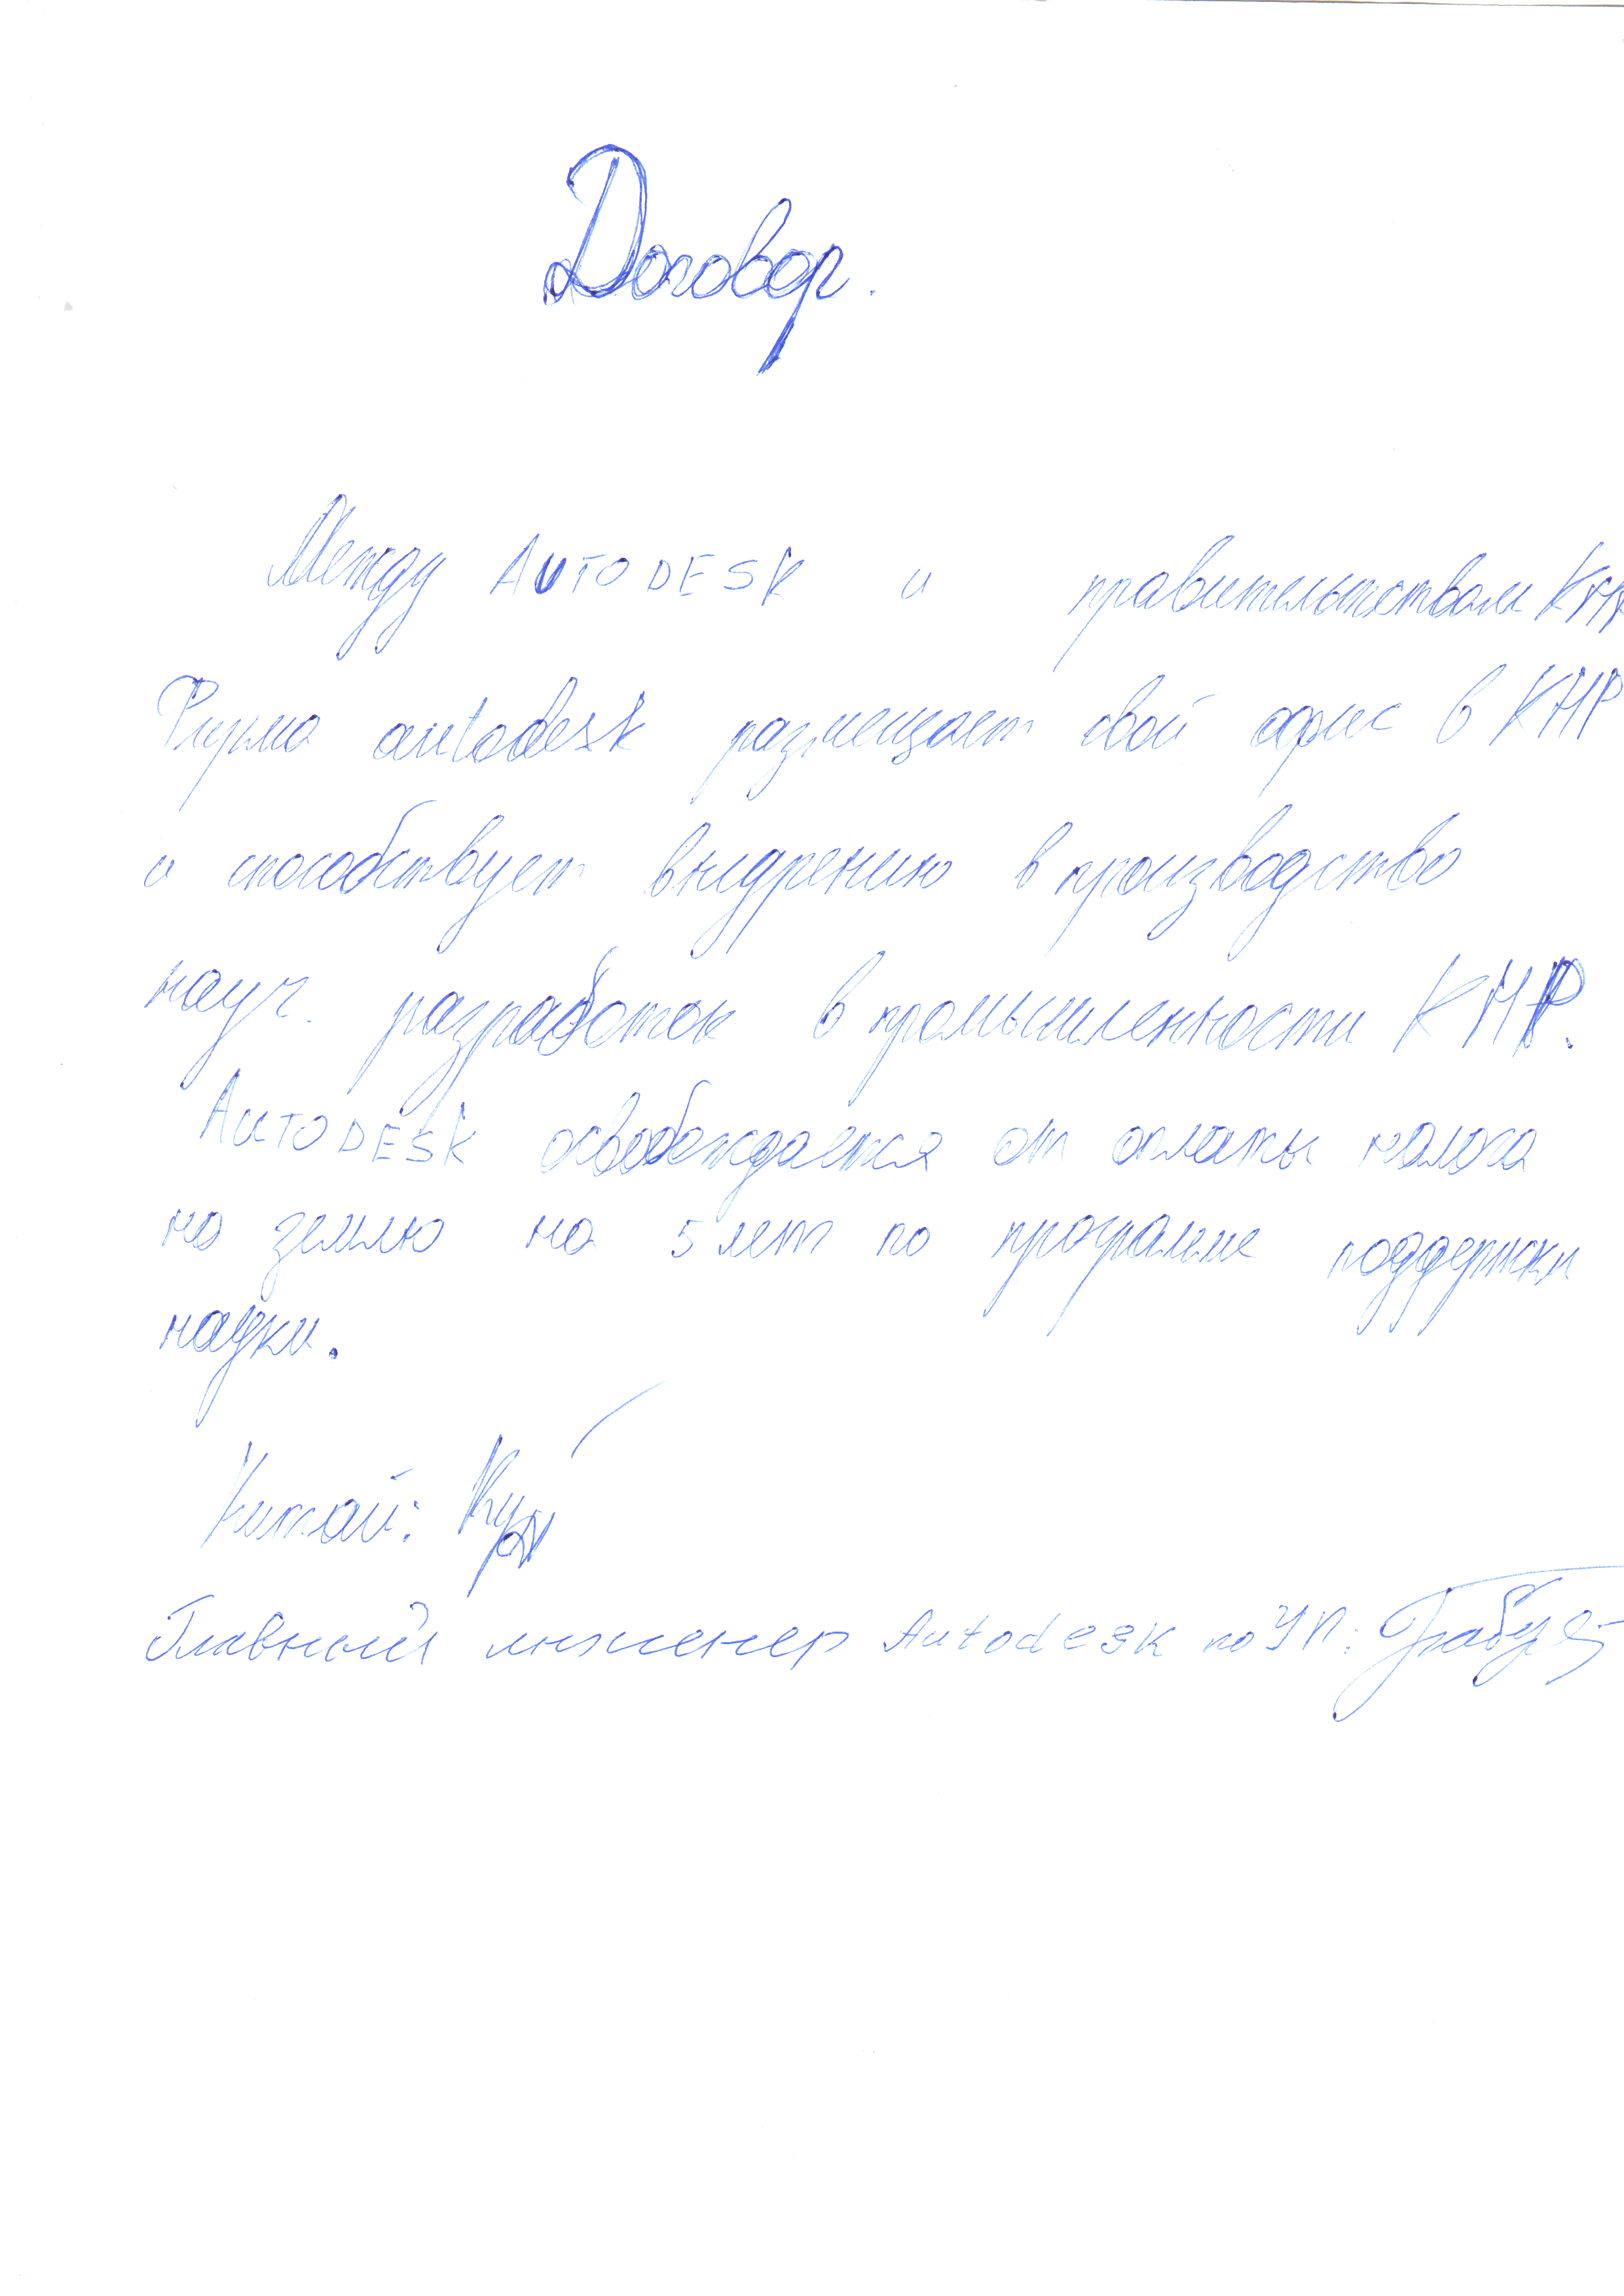 Договор.
Между AUTODESK и правительством КНР
Фирма autodesk размещает свой офис в КНР
и способствует внедрению в производство
науч. разработок в промышленности КНР.
AUTODESK освобождается от оплаты налога
на землю на 5 лет по программе поддержки
науки.
Китай:
Главный инженер Autodesk по УП: